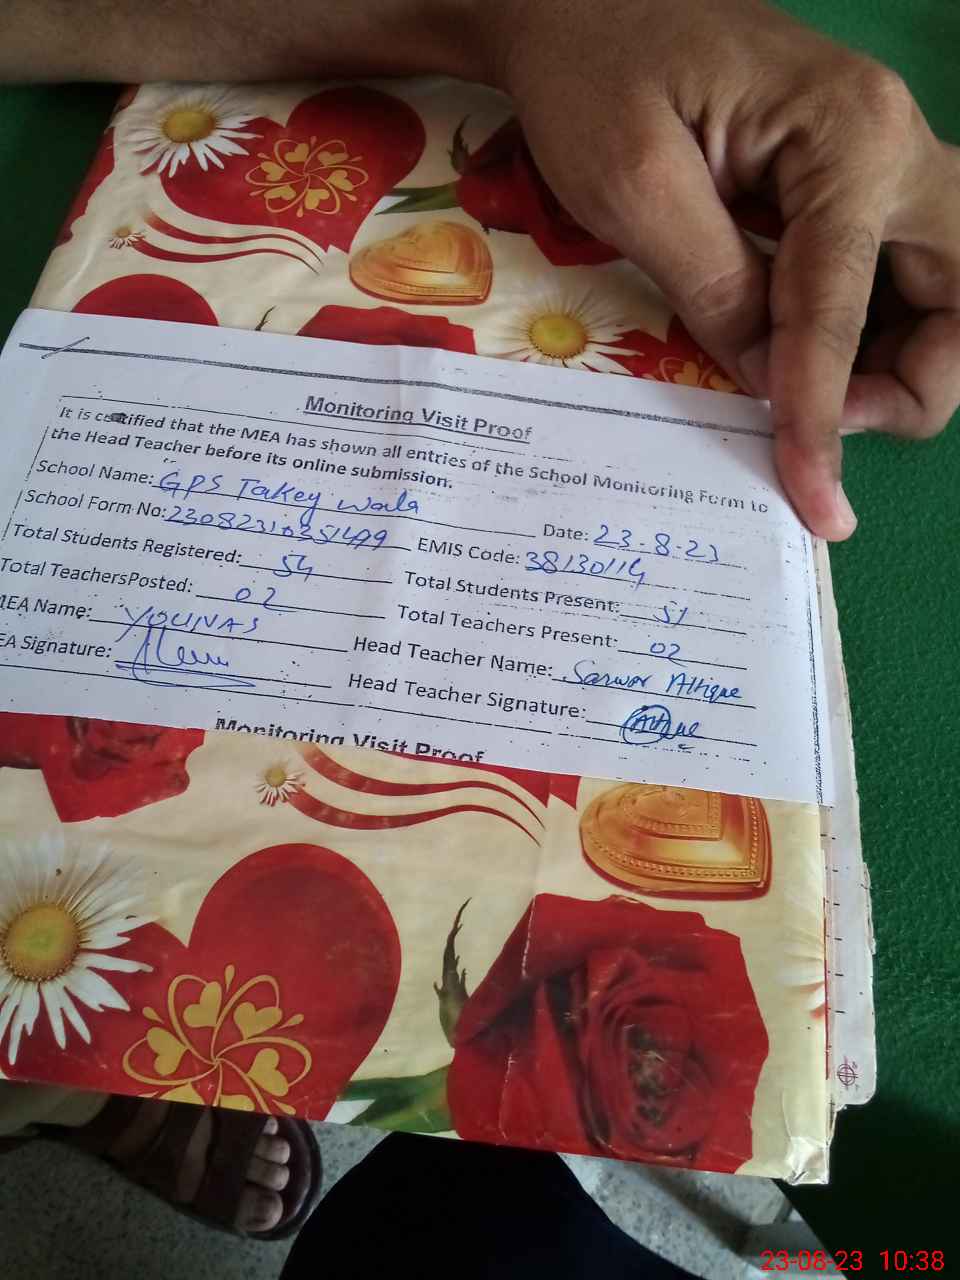 Monitoring Visit Proof
It is certified that the MEA has shown all entries of the School Monitoring Form to
the Head Teacher before its online submission.
School Name: GPS Takey Wala Date: 23-8-23
School Form No: 23082310351499 EMIS Code: 38130114
Total Students Registered: 54 Total Students Present: 51
Total TeachersPosted: 02 Total Teachers Present: 02
MEA Name: YOUNAS Head Teacher Name: Sarwar Attique
EA Signature: Head Teacher Signature: Attique
Monitoring Visit Proof
23-08-23 10:38